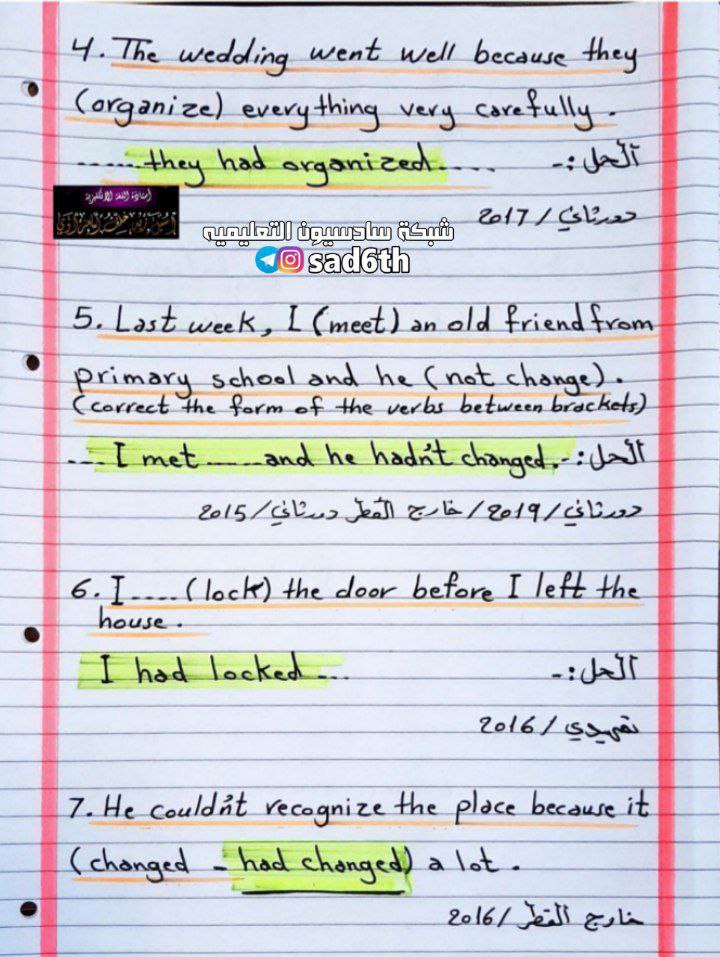 4. The wedding went well because they
(organize) everything very carefully.
الحل :- ......they had organized.....
دورثاني / 2017
أستاذة اللغة الانكليزية
شبكة سادسيون التعليميه
sad6th
5. Last week, I (meet) an old friend from
primary school and he (not change).
(correct the form of the verbs between brackets)
الحل :- ....I met ......and he hadn't changed.
دورثاني / 2019 / خارج القطر دورثاني / 2015
6. I..... (lock) the door before I left the
house.
الحل :- I had locked ....
تمهيدي / 2016
7. He couldn't recognize the place because it
(changed - had changed) a lot.
خارج القطر / 2016